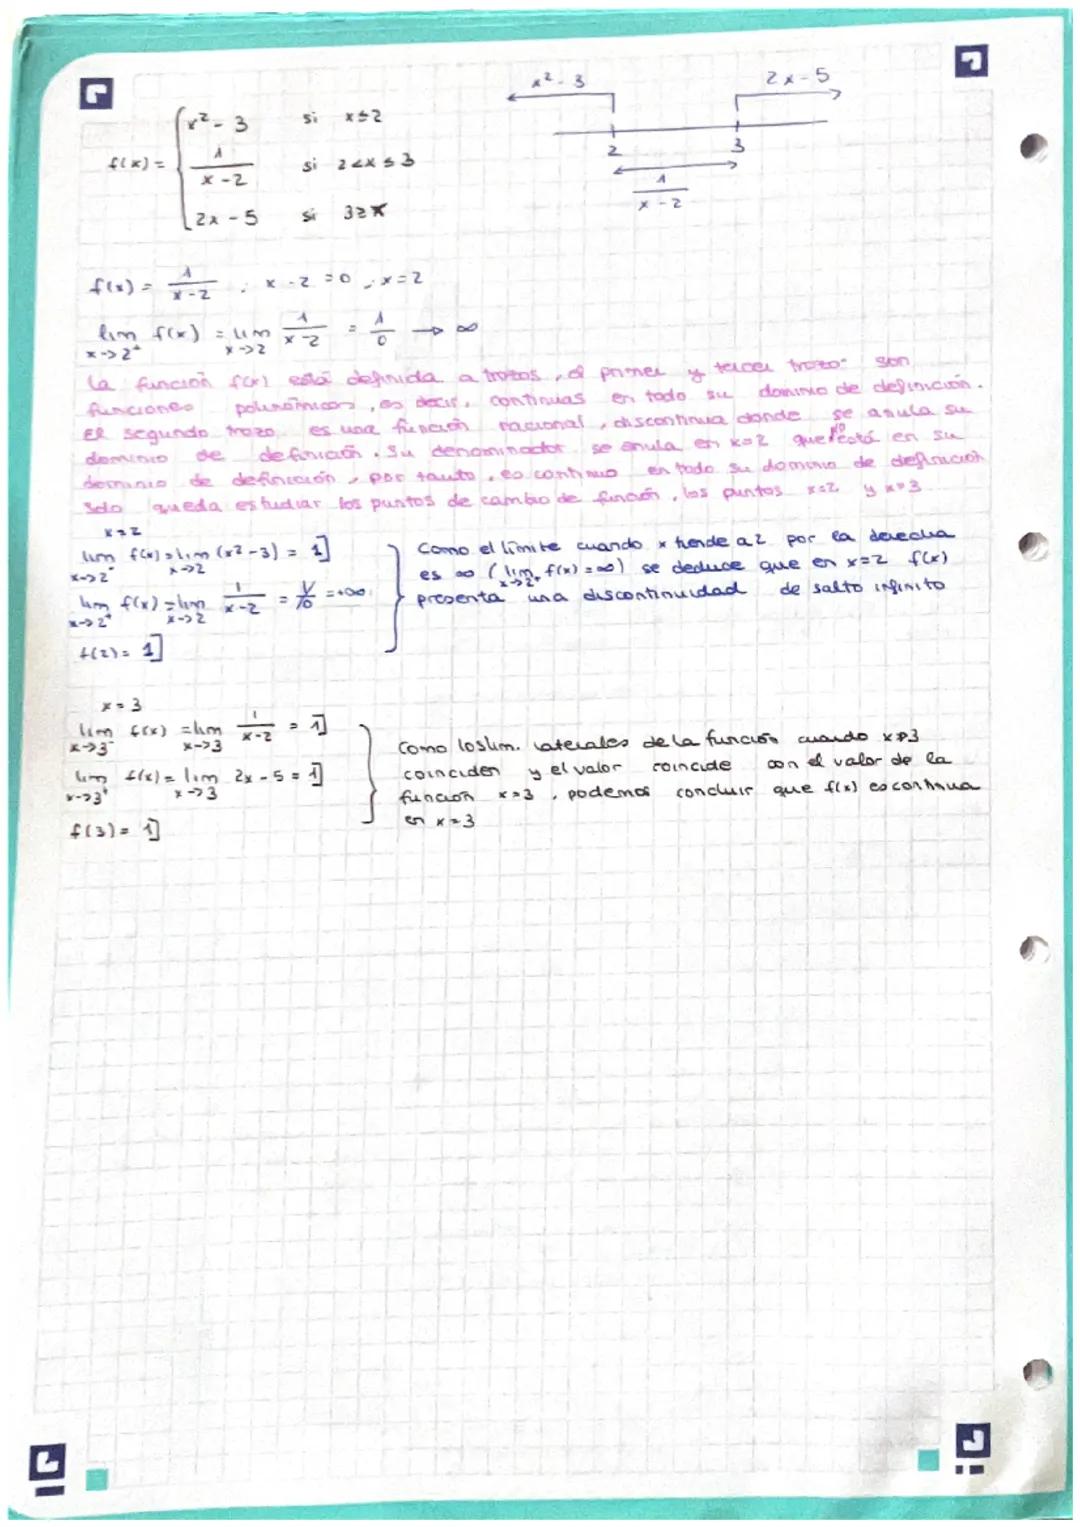 x² - 3
2x - 5
2
3
1/(x - 2)
f(x) = { x² - 3 si x ≤ 2
1/(x - 2) si 2 < x ≤ 3
2x - 5 si 3 ≥ x
f(x) = 1/(x - 2) ; x - 2 = 0 ; x = 2
lim x->2⁺ f(x) = lim x->2 1/(x - 2) = 1/0 → ∞
La función f(x) está definida a trozos, el primer y tercer trozo son
funciones polinómicas, es decir, continuas en todo su dominio de definición.
El segundo trozo es una función racional, discontinua donde se anula su
dominio de definición. Su denominador se anula en x=2 que no está en su
dominio de definición, por tanto, es continuo en todo su dominio de definición
Solo queda estudiar los puntos de cambio de función, los puntos x=2 y x=3
x=2
lim x->2⁻ f(x) = lim x->2 (x² - 3) = 1]
lim x->2⁺ f(x) = lim x->2 1/(x - 2) = 1/0 = +∞
f(2) = 1]
Como el límite cuando x tiende a 2 por la derecha
es ∞ (lim x->2⁺ f(x) = ∞) se deduce que en x=2 f(x)
presenta una discontinuidad de salto infinito
x = 3
lim x->3⁻ f(x) = lim x->3 1/(x - 2) = 1]
lim x->3⁺ f(x) = lim x->3 2x - 5 = 1]
f(3) = 1]
Como los lim. laterales de la función cuando x 3
coinciden y el valor coincide con el valor de la
función x=3, podemos concluir que f(x) es continua
en x=3